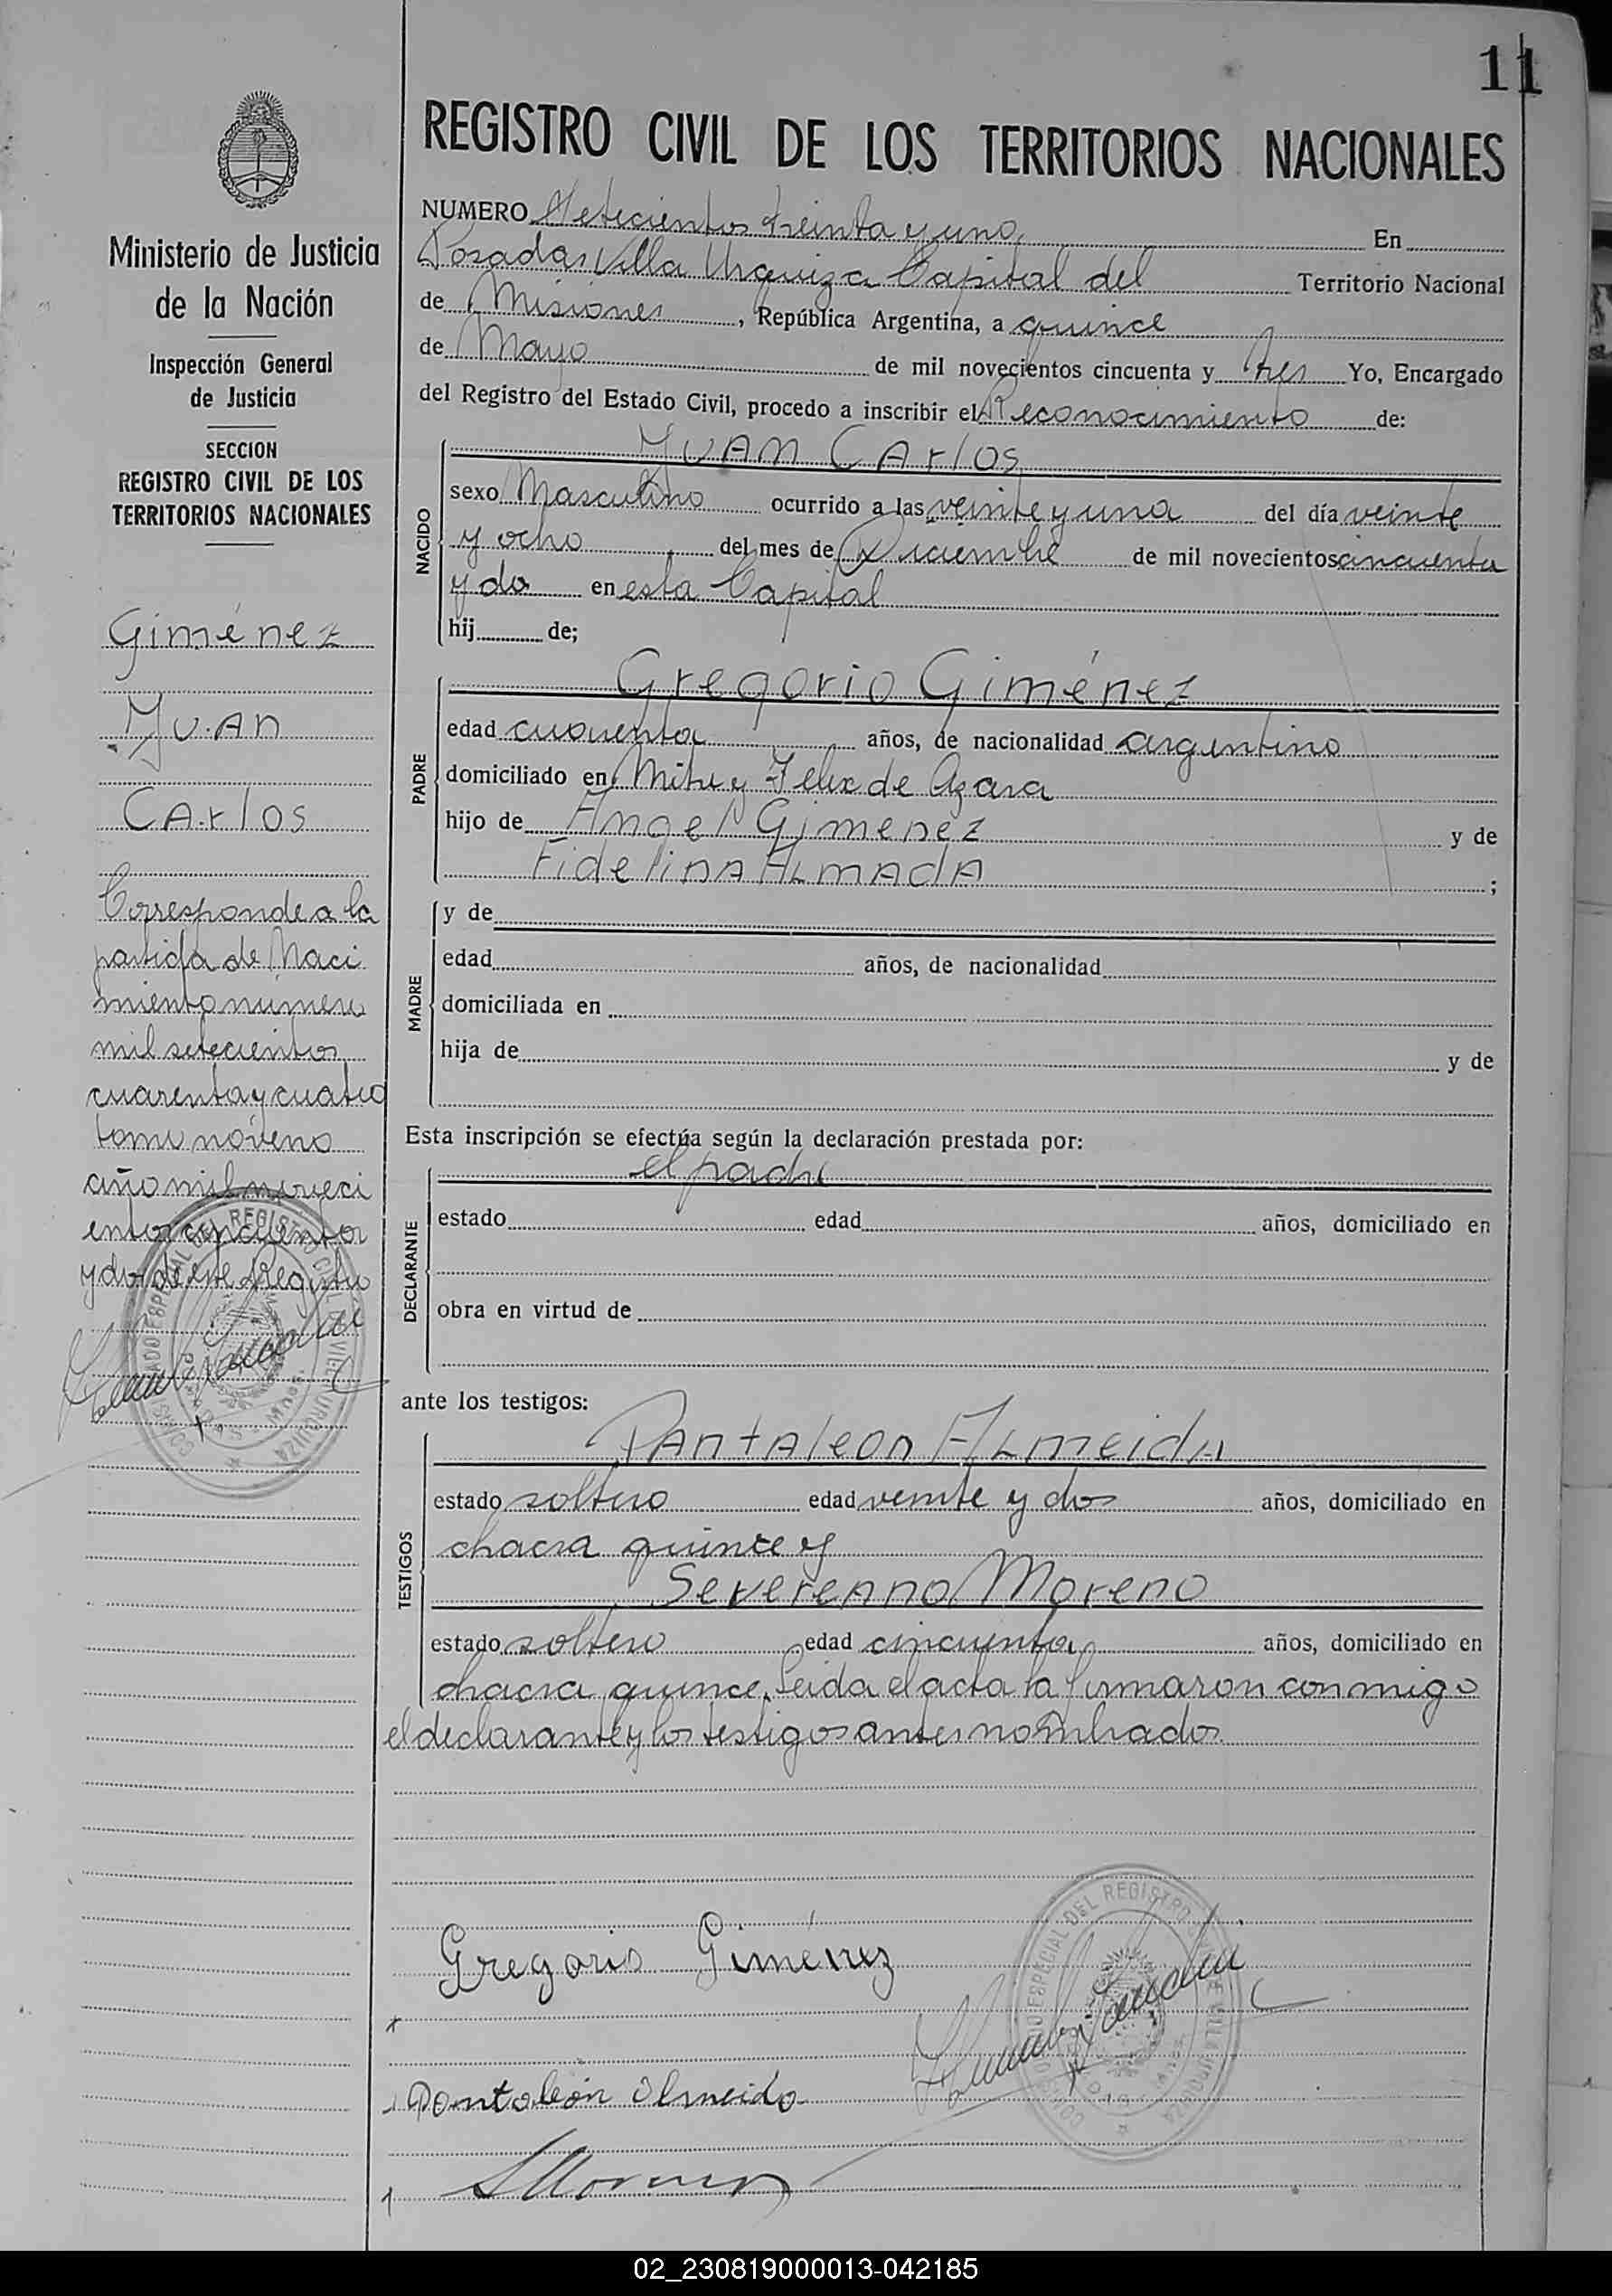 11
Ministerio de Justicia
de la Nación
Inspección General
de Justicia
SECCION
REGISTRO CIVIL DE LOS
TERRITORIOS NACIONALES
Giménez
Juan
Carlos
Corresponde a la
partida de Naci
miento número
mil setecientos
cuarenta y cuatro
tomo noveno
año mil noveci
entos cincuenta
y dos de este Registro
REGISTRO CIVIL DE LOS TERRITORIOS NACIONALES
NUMERO Setecientos treinta y uno En
Posadas Villa Urquiza Capital del Territorio Nacional
de Misiones, República Argentina, a quince
de Mayo de mil novecientos cincuenta y tres Yo, Encargado
del Registro del Estado Civil, procedo a inscribir el Reconocimiento de:
NACIDO
JUAN CArlos
sexo Masculino ocurrido a las veinte y una del día veinte
y ocho del mes de Diciembre de mil novecientos cincuenta
y do en esta Capital
hij de;
PADRE
Gregorio Giménez
edad cuarenta años, de nacionalidad argentino
domiciliado en Mitre y Felix de Azara
hijo de Angel Gimenez y de
Fidelina ALmada;
MADRE
y de
edad años, de nacionalidad
domiciliada en
hija de y de
Esta inscripción se efectúa según la declaración prestada por:
DECLARANTE
el padre
estado edad años, domiciliado en
obra en virtud de
ante los testigos:
TESTIGOS
Pantaleon ALmeida
estado soltero edad veinte y dos años, domiciliado en
chacra quince y
Severeano Moreno
estado soltero edad cincuenta años, domiciliado en
chacra quince. Leida el acta la firmaron conmigo
el declarante y los testigos antes nombrados.
Gregorio Giménez
Pantaleón Almeida
SMoreno
02_230819000013-042185